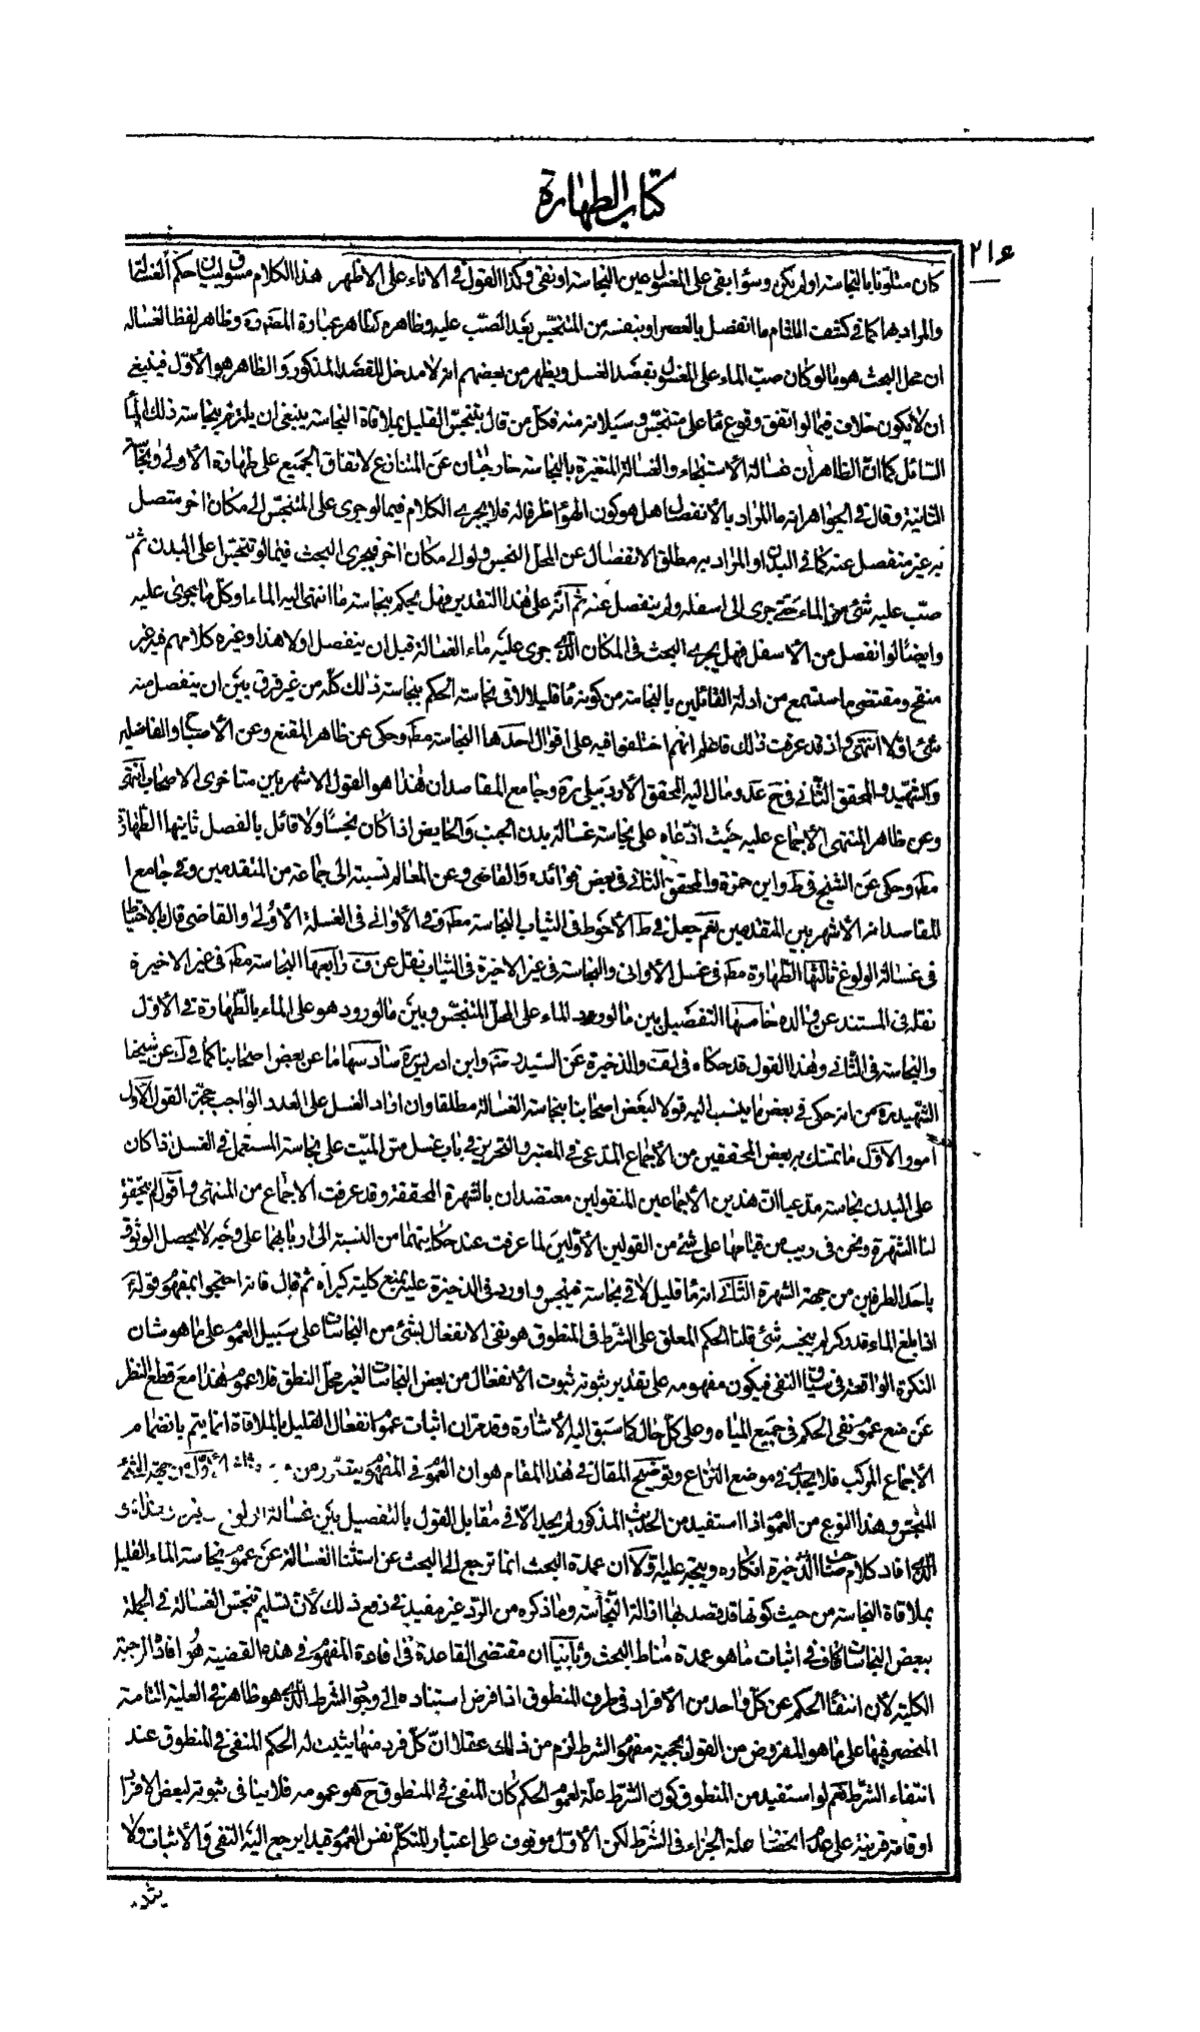 كتاب الطهارة
٢١۶
كان متلونا بالنجاسة او لم يكن وسواء بقى على المغسول عين النجاسة او نقى وكذا القول فى الاناء على الاظهر هذا الكلام مسوق لبيان حكم الغسالة
والمراد بها كما فى كشف اللثام ما انفصل بالعصر او بنفسه من المتنجس بعد الصب عليه وظاهره كظاهر عبارة المصنف وظاهر لفظ الغسالة
ان محل البحث هو ما لو كان صب الماء على المغسول بقصد الغسل ويظهر من بعضهم انه لا مدخل للقصد المذكور والظاهر هو الأول فينبغى
ان لا يكون خلاف فيما لو اتفق وقوع ماء على متنجس وسيلانه منه فكل من قال بتنجس القليل بملاقاة النجاسة ينبغى ان يلتزم بنجاسة ذلك الماء
السائل كما ان الظاهر ان غسالة الأستنجاء والغسالة المتغيرة بالنجاسة خارجتان عن المتنازع لاتفاق الجميع على طهارة الأولى ونجاسة
الثانية وقال فى الجواهر انه ما المراد بالأنفصال هل هو كون الهواء ظرفا له فلا يجرى الكلام فيما لو جرى على المتنجس الى مكان اخر متصل
به غير منفصل عنه كما فى البدن او المراد به مطلق الانفصال عن المحل النجس ولو الى مكان اخر فيجرى البحث فيما لو تنجس اعلى البدن ثم
صب عليه شئ من الماء حتى جرى الى اسفله ولم ينفصل عنه ثم انه على هذا التقدير فهل يحكم بنجاسة ما انتهى اليه الماء وكل ما يجرى عليه
وايضا لو انفصل من الأسفل فهل يجرى البحث فى المكان الذى جرى عليه ماء الغسالة قبل ان ينفصل اولا هذا وغيره كلامهم فيه غير
منقح ومقتضى ما ستسمع من ادلة القائلين بالنجاسة من كونه ماء قليلا لاقى نجاسة الحكم بنجاسة ذلك كله من غير فرق بين ان ينفصل منه
شئ او لا انتهى واذ قد عرفت ذلك فاعلم انهم اختلفوا فيه على اقوال احدها النجاسة مط وحكى عن ظاهر المقنع وعن الأصباح والفاضلين
والشهيد والمحقق الثانى فى عد ومال اليه المحقق الأردبيلى ره وجامع المقاصد ان هذا هو القول الاشهر بين متاخرى الاصحاب انتهى
وعن ظاهر المنتهى الأجماع عليه حيث ادعاه على نجاسة غسالة بدن الجنب والحايض اذا كان نجسا ولا قائل بالفصل ثانيها الطهارة
مط وحكى عن الشيخ فى ط وابن حمزة والمحقق الثانى فى بعض فوائده والقاضى وعن المعالم نسبته الى جماعة من المتقدمين وفى جامع ا
لمقاصد انه الأشهر بين المتقدمين نعم جعل فى ط الأحوط فى الثياب النجاسة مط وفى الأوانى فى الغسلة الأولى والقاضى قال بالاحتياط
فى غسالة الولوغ ثالثها الطهارة مط فى غسل الأوانى والنجاسة فى غير الاخيرة فى الثياب نقل عن ف رابعها النجاسة مط فى غير الاخيرة
نقله فى المستند عن والده خامسها التفصيل بين ما لو ورد الماء على المحل المتنجس وبين ما لو ورد هو على الماء بالطهارة فى الأول
والنجاسة فى الثانى وهذا القول قد حكاه فى لف والذخيرة عن السيد رض وابن ادريس ره سادسها ما عن بعض اصحابنا كما فى ك عن شيخنا
الشهيد ره من انه حكى فى بعض ما ينسب اليه قولا لبعض اصحابنا بنجاسة الغسالة مطلقا وان زاد الغسل على العدد الواجب حجة القول الأول
امور الأول ما تمسك به بعض المحققين من الأجماع المدعى فى المعتبر والتحرير فى باب غسل مس الميت على نجاسة المستعمل فى الغسل اذا كان
على البدن نجاسة مدعيا ان هذين الأجماعين المنقولين معتضدان بالشهرة المحققة وقد عرفت الاجماع من المنتهى واقول لم يتحقق
لنا الشهرة ونحن فى ريب من قيامها على شئ من القولين الأولين لما عرفت عند حكايتهما من النسبة الى اربابهما على وجه لا يحصل الوثوق
باحد الطرفين من جهة الشهرة الثانى انه ماء قليل لاقى نجاسة فينجس واورد فى الذخيرة عليه بمنع كلية كبراه ثم قال فانه احتجوا بمفهوم قوله ع
اذا بلغ الماء قدر كر لم ينجسه شئ قلنا الحكم المعلق على الشرط فى المنطوق هو نفى الانفعال بشئ من النجاسات على سبيل العموم على ما هو شان
النكرة الواقعة فى سياق النفى فيكون مفهومه على تقدير ثبوته ثبوت الأنفعال من بعض النجاسات لغير محل النطق فلا عموم هذا مع قطع النظر
عن منع عموم نفى الحكم فى جميع المياه وعلى كل حال كما سبق اليه الأشارة وقد مر ان اثبات عموم انفعال القليل بالملاقاة انما يتم بانضمام
الأجماع المركب فلا يجدى فى موضع النزاع وتوضيح المقال فى هذا المقام هو ان العموم فى المفهوم يتصور من الأول من جهة الشئ
المنجس وهذا النوع من العموم اذا استفيد من الحديث المذكور لم يجد الا فى مقابل القول بالتفصيل بين غسالة
الذى افاد كلام صاحب الذخيرة انكاره ويتجه عليه اولا ان عمدة البحث انما ترجع الى البحث عن استثناء الغسالة عن عموم نجاسة الماء القليل
بملاقاة النجاسة من حيث كونها قد قصد بها ازالة النجاسة وما ذكره من الرد غير مفيد فى دفع ذلك لأن تسليم تنجس الغسالة فى الجملة
ببعض النجاسات كاف فى اثبات ما هو عمدة مناط البحث وثانيا ان مقتضى القاعدة فى افادة المفهوم فى هذه القضية هو افادة الموجبة
الكلية لأن انتفاء الحكم عن كل واحد من الأفراد فى طرف المنطوق اذا فرض استناده الى وجود الشرط الذى هو ظاهر فى العلية التامة
المنحصر فيها على ما هو المفروض من القول بحجية مفهوم الشرط لزم من ذلك عقلا ان كل فرد منها يثبت له الحكم المنفى فى المنطوق عند
انتفاء الشرط نعم لو استفيد من المنطوق كون الشرط علة لعموم الحكم كان المنفى فى المنطوق ح هو عمومه فلا ينافى ثبوته لبعض الافراد
او قامت قرينة على عدم انحصار علة الجزاء فى الشرط لكن الأول موقوف على اعتبار المتكلم نفس العموم قيدا يرجع اليه النفى والأثبات ولا